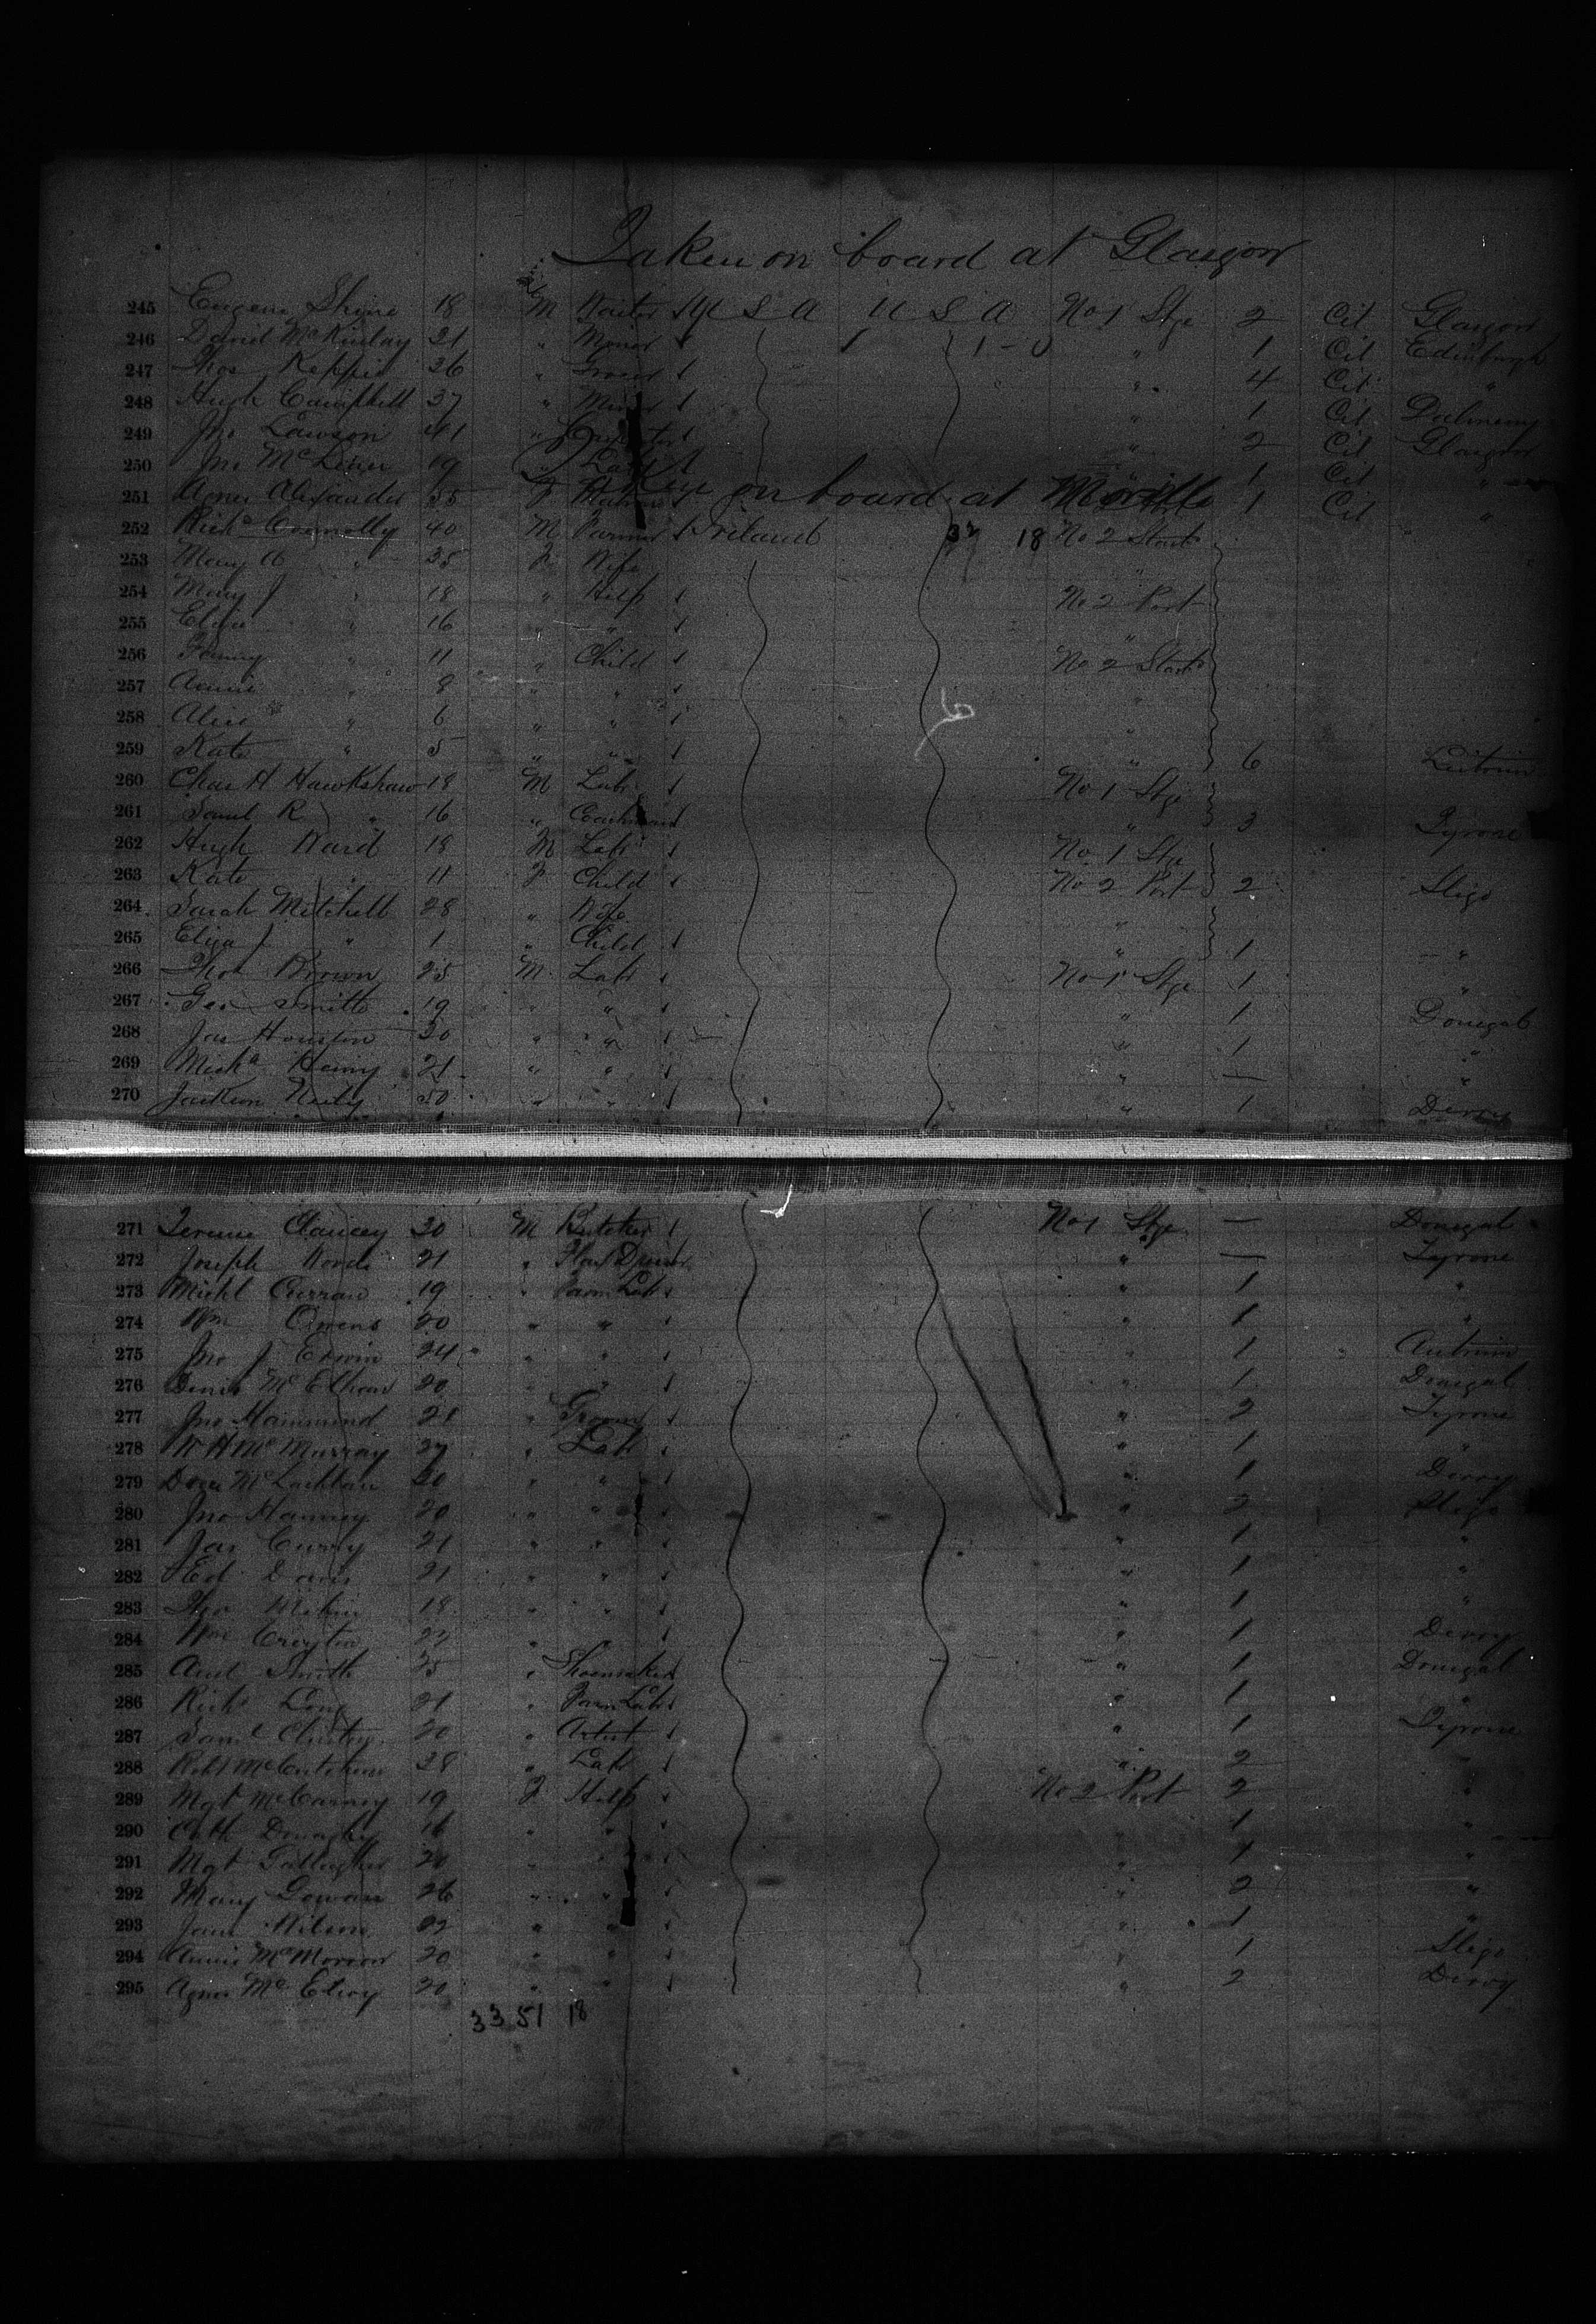 Taken on board at Glasgow
245 Eugene Shine 18 M Waiter U S A U S A No 1 Stge 2 Cit Glasgow
246 David McKinlay 21 " 1 " 1 Cit Edinburgh
247 Thos Keppie 36 " " 4 Cit "
248 Hugh Campbell 37 " Miner " 1 Cit Dalmeny
249 Jno Lawson 41 " " 2 Cit Glasgow
250 Jno 19 " Labr " 1 Cit "
Taken on board at Moville
251 Agnes Alexander 25 F 1 Cit "
252 Richd Connolly 40 M Farmer Ireland 18 No 2 Starb
253 Mary A " 35 F Wife "
254 Mary J " 18 " Help No 2 Port
255 Eliza " 16 " " "
256 Fanny " 11 " Child No 2 Starb
257 Annie " 8 " " "
258 Alice " 6 " " "
259 Kate " 5 " " " 6 Leitrim
260 Chas H Hawkshaw 18 M Labr No 1 Stge
261 Saml R " 16 " Coachman " 3 Tyrone
262 Hugh Ward 18 M Labr No 1 Stge
263 Kate " 11 F Child No 2 Port 2 Sligo
264 Sarah Mitchell 28 " Wife "
265 Eliza J " 1 " Child " 1 "
266 Thos Brown 25 M Labr No 1 Stge 1 "
267 Geo Smith 19 " " " 1 Donegal
268 Jas Houston 30 " " " 1 "
269 Micha 21 " " " — "
270 50 " " " 1 Derry
271 Clancey 30 M Butcher No 1 Stge — Donegal
272 Joseph 21 " " — Tyrone
273 Michl Curran 19 " Farm Labr " 1 "
274 Wm Owens 20 " " " 1 "
275 Jno J Erwin 24 " " " 1 Antrim
276 Denis 20 " " " 1 Donegal
277 Jno Hammond 21 " Groom " 2 Tyrone
278 W H McMurray 27 " Labr " 1 "
279 McLachlan 20 " " " 1 Derry
280 Jno Hanney 20 " " " 2 Sligo
281 Jas Curry 21 " " " 1 "
282 Ed Davis 21 " " " 1 "
283 18 " " " 1 "
284 Wm Creyton " " 1 Derry
285 Smith 25 " Shoemaker " 1 Donegal
286 Richd Long 21 " Farm Labr " 1 "
287 Saml 20 " Artist " 1 Tyrone
288 Robt McCutcheon 28 " Labr " 2 "
289 Mgt McCarney 19 F Help No 2 Port 2 "
290 Cath Donaghy 16 " " " 1 "
291 Mgt Gallagher 20 " " " 1 "
292 Mary 26 " " " 2 "
293 Jane Wilson 22 " " " 1 "
294 Annie 20 " " " 1 Sligo
295 Agnes McElroy 20 " " " 2 Derry
33 51 18